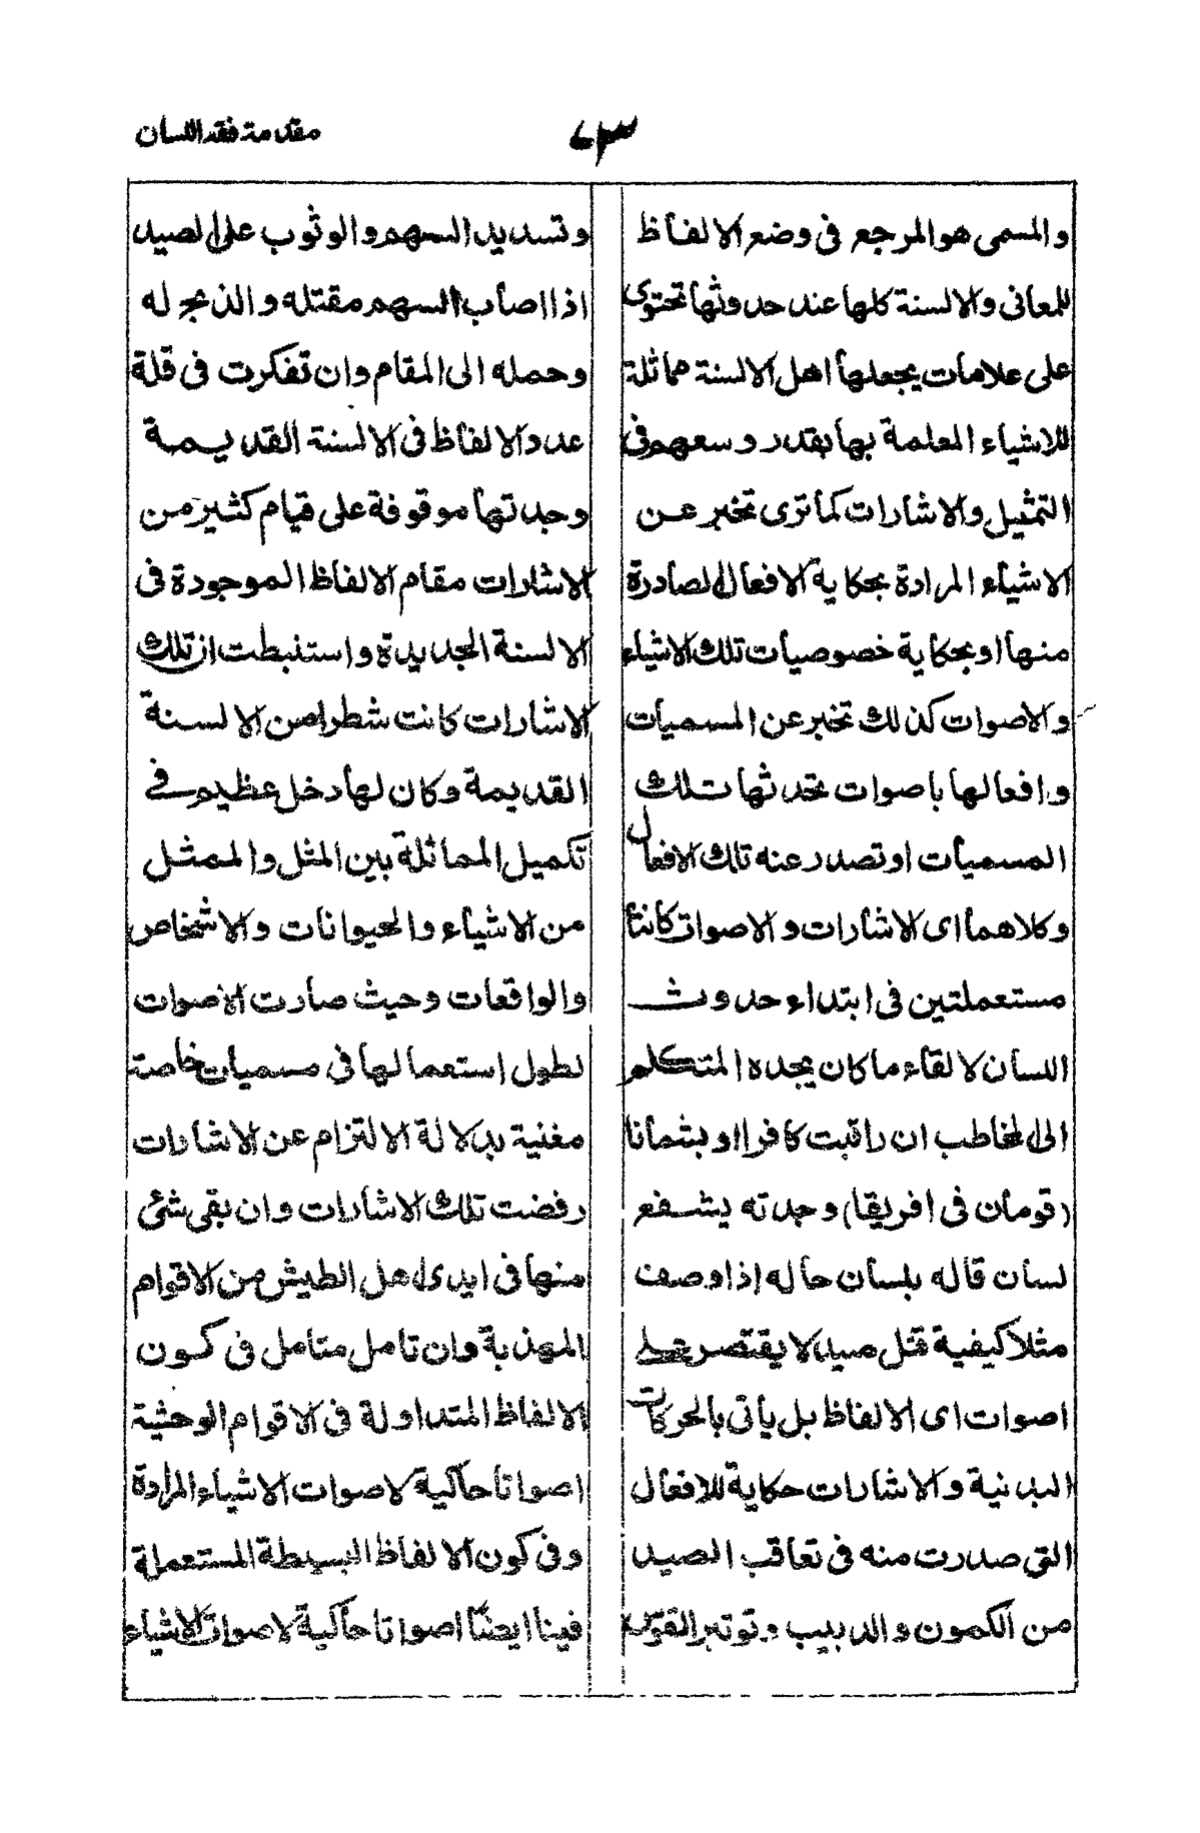 مقدمة فقه اللسان
٧٣
والمسمى هو المرجع فى وضع الالفاظ
للمعانى والالسنة كلها عند حدوثها تحتوى
على علامات يجعلها اهل الالسنة مماثلة
للاشياء المعلمة بها بقدر وسعهم فى
التمثيل والاشارات كما ترى تخبر عن
الاشياء المرادة بحكاية الافعال الصادرة
منها او بحكاية خصوصيات تلك الاشياء
والاصوات كذلك تخبر عن المسميات
وافعالها باصوات تحدثها تلك
المسميات او تصدر عنه تلك الافعال
وكلاهما اى الاشارات والاصوات كانتا
مستعملتين فى ابتداء حدوث
اللسان لالقاء ما كان يجده المتكلم
الى المخاطب ان راقبت كافرا او بشمانا
(قومان فى افريقا) وجدته يشفع
لسان قاله بلسان حاله اذا وصف
مثلا كيفية قتل صيد لا يقتصر على
اصوات اى الالفاظ بل يأتى بالحركات
البدنية والاشارات حكاية للافعال
التى صدرت منه فى تعاقب الصيد
من الكمون والدبيب وتوتير القوس
وتسديد السهم والوثوب على الصيد
اذا اصاب السهم مقتله والذبح له
وحمله الى المقام وان تفكرت فى قلة
عدد الالفاظ فى الالسنة القديمة
وجدتها موقوفة على قيام كثير من
الاشارات مقام الالفاظ الموجودة فى
الالسنة الجديدة واستنبطت ان تلك
الاشارات كانت شطرا من الالسنة
القديمة وكان لها دخل عظيم فى
تكميل المماثلة بين المثل والممثل
من الاشياء والحيوانات والاشخاص
والواقعات وحيث صارت الاصوات
لطول استعمالها فى مسميات خاصة
مغنية بدلالة الالتزام عن الاشارات
رفضت تلك الاشارات وان بقى شئى
منها فى ايدى اهل الطيش من الاقوام
المهذبة وان تامل متامل فى كون
الالفاظ المتداولة فى الاقوام الوحشية
اصواتا حاكية لاصوات الاشياء المرادة
وفى كون الالفاظ البسيطة المستعملة
فينا ايضا اصواتا حاكية لاصوات الاشياء